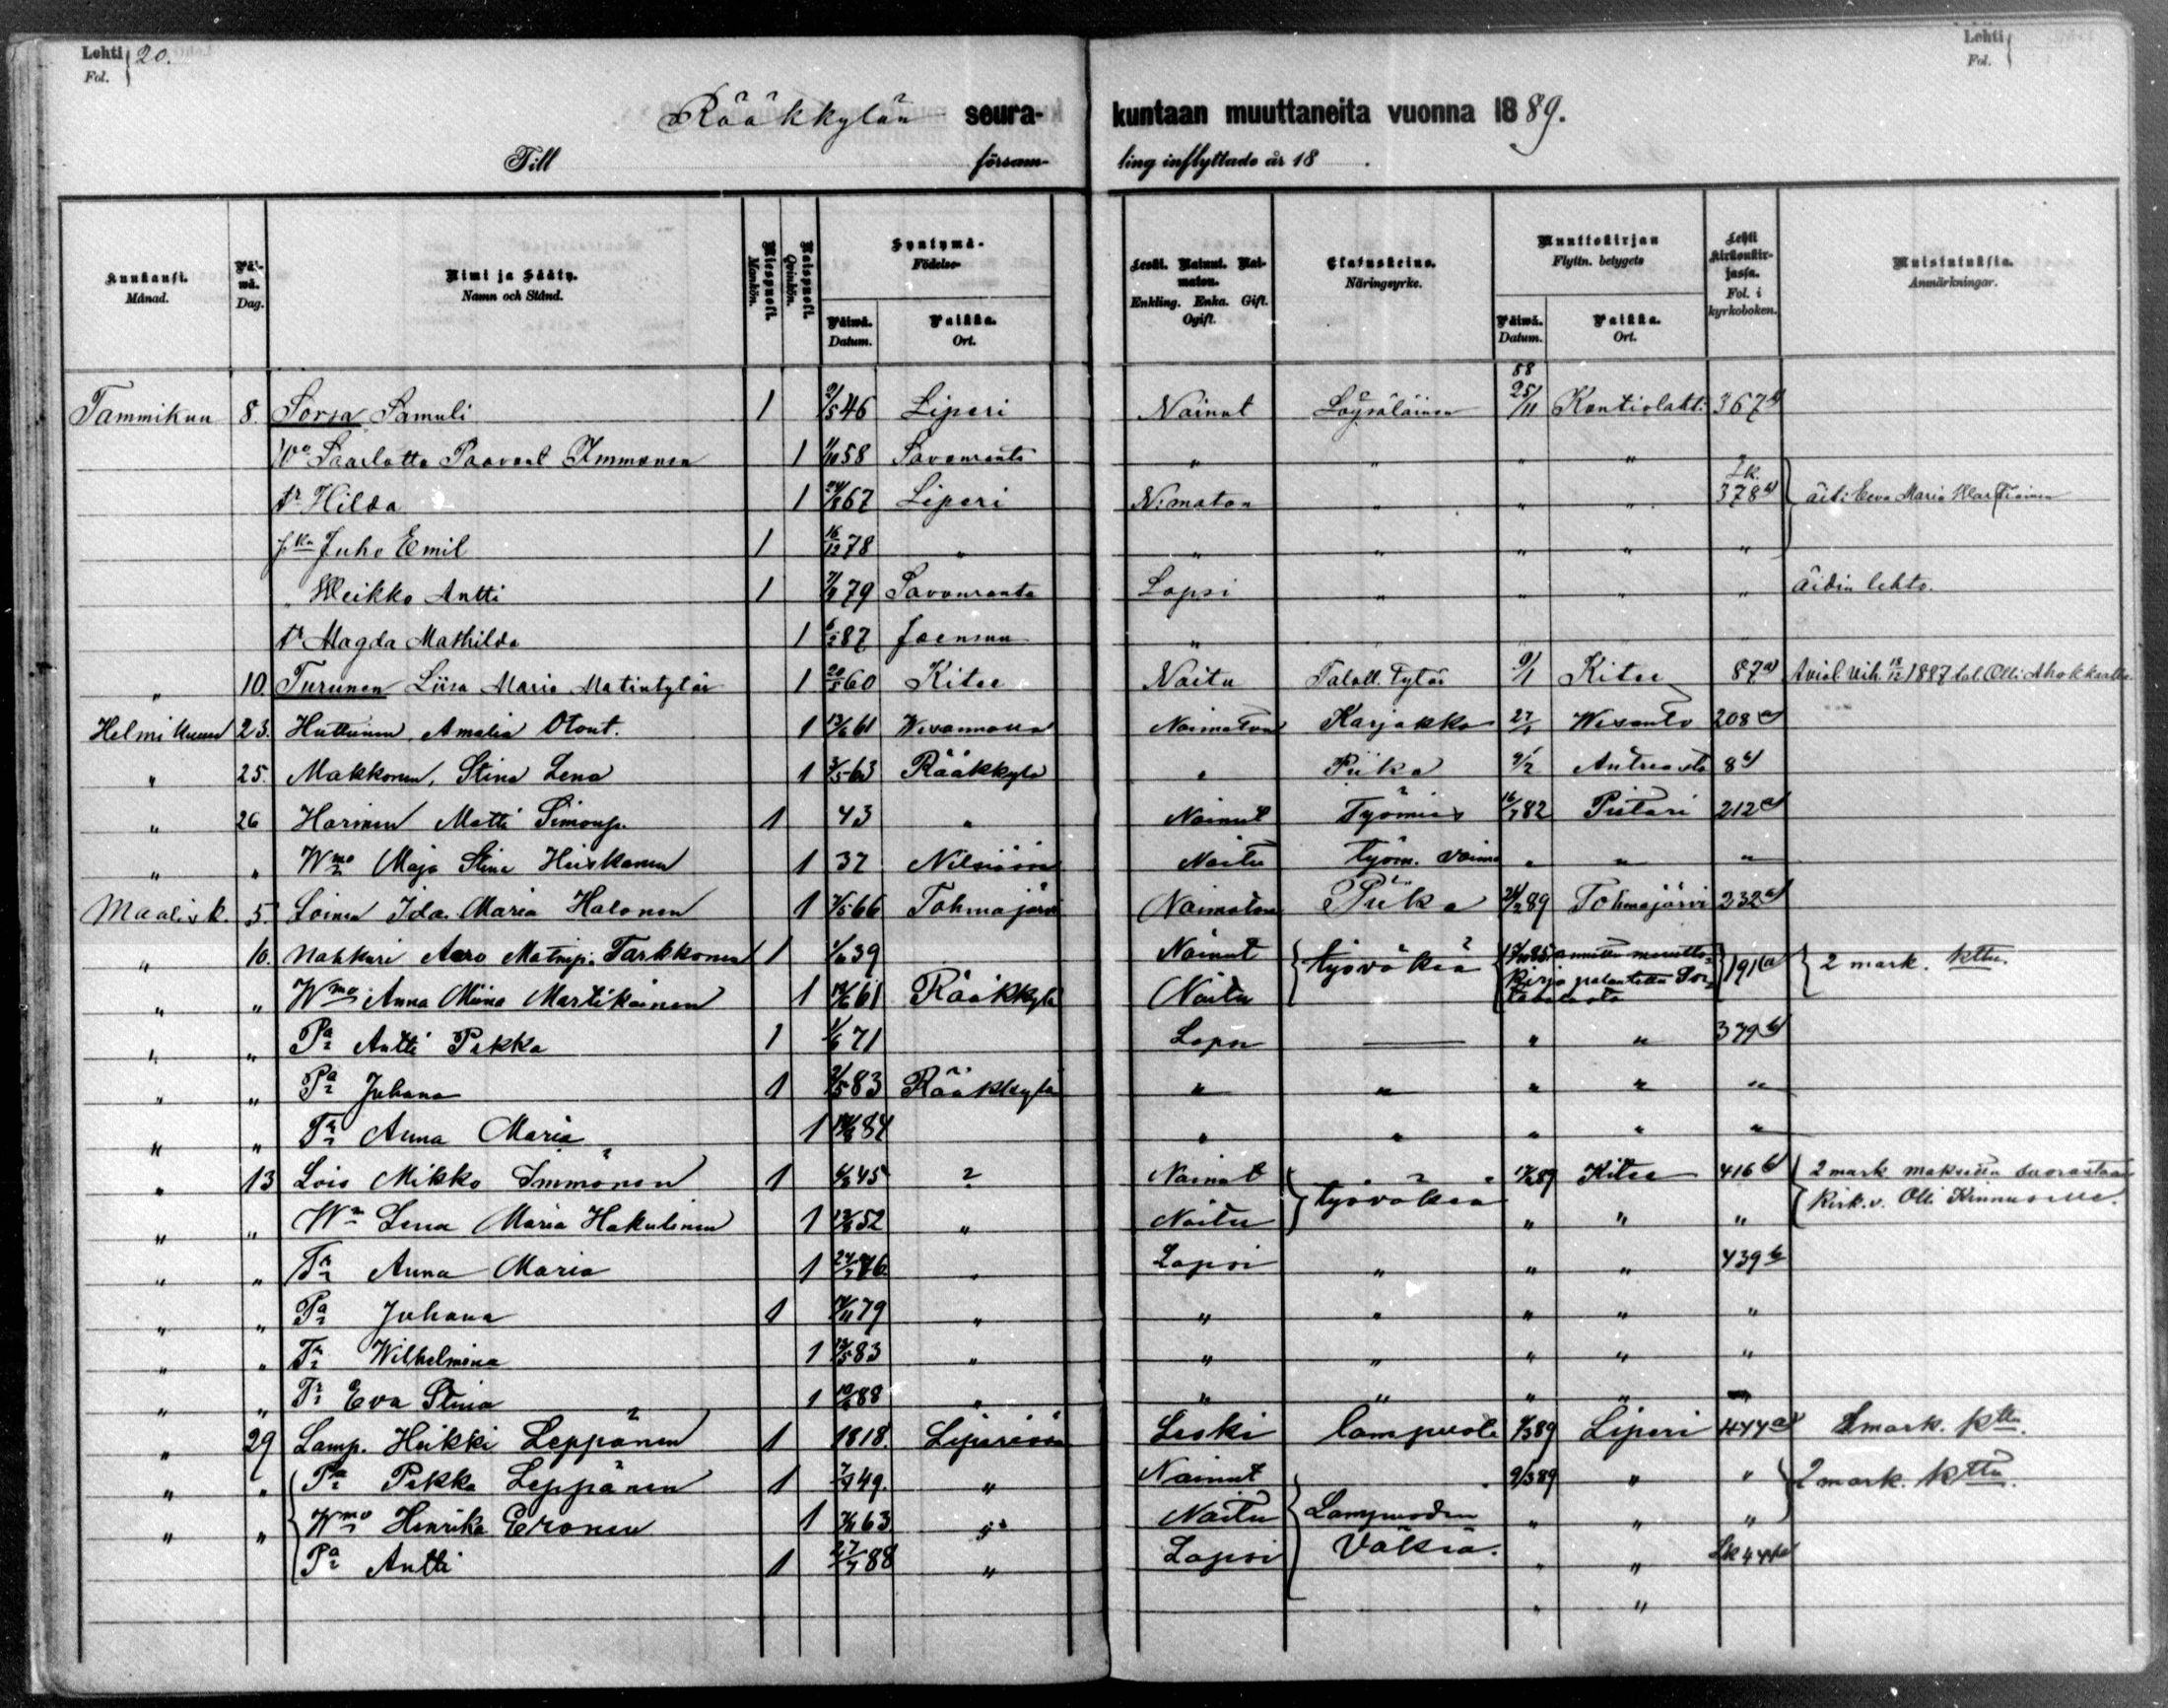 Lehti 20.
Fol.
Lehti
Fol.
Rääkkylän seura- kuntaan muuttaneita vuonna 1889.
Till försam- ling inflyttade år 18 .
Kuukausi. Månad. Päivä. Dag. Nimi ja Sääty. Namn och Stånd. Miespuoli. Mankön. Naispuoli. Qvinkön. Syntymä- Födelse- Päivä. Datum. Paikka. Ort. Leski. Nainut. Naimaton. Enkling. Enka. Gift. Ogift. Elatuskeino. Näringsyrke. Muuttokirjan Flyttn. betygets Päivä. Datum. Paikka. Ort. Lehti kirkonkirjassa. Fol. i kyrkoboken. Muistutuksia. Anmärkningar.
Tammikuu 8. Sorsa Samuli 1 46 Liperi Nainut 88 25/11 Kontiolaht. 367
Wo Saarlotta Paavont Immonen 1 58 Savonranta " " " "
tr Hilda 1 67 Liperi N:maton " " " 378 äiti Eeva Maria
Juho Emil 1 16/12 78 " " " " " "
" Heikko Antti 1 79 Savonranta Lapsi " " " " Äidin lehto.
tr Magda Mathilda 1 87 Joensuu " "
" 10. Turunen Liisa Maria Matintytär 1 20/5 60 Kitee Naitu Taloll. Tytär 9/1 Kitee 87 a) Aviol. vih. 18/12 1887 tal. Olli
Helmikuun 23. Huttunen Amalia Otont. 1 61 Naimaton Karjakko 27/1 208
" 25. Makkonen, Stina Lena 1 3/5 63 Rääkkylä " Piika 9/2 8
" 26 Harinen Matti Simonp. 1 43 " Nainut Työmies 16/7 82 Pietari 212
" " Wmo Maja Stina Heiskanen 1 37 Nilsiässä Naitu työm. vaimo " " "
Maalisk. 5. Loinen Ida Maria Halonen 1 7/5 66 Tohmajärvi Naimaton Piika 89 Tohmajärvi 232
" 10. Nahkuri Aaro Matinp. Tarkkonen 1 39 Nainut työväkeä annettu muutto- 191 2 mark. kttu.
" " Wmo Anna Miina Martikainen 1 61 Rääkkylä Naitu kirja palautettu
" " Pa Antti Pekka 1 71 Lapsi — " " 379
" " Pa Juhana 1 83 Rääkkylä " " " " "
" " Tr Anna Maria 1 84 " " " " "
" 13 Lois Mikko Immonen 1 45 ? Nainut " " 89 Kitee 416 2 mark maksettu suorastaan
" " Wo Lena Maria Hakulinen 1 52 " Naitu työväkeä " " " Kirk.v. Olli Kinnuselle.
" " Tr Anna Maria 1 76 " Lapsi " " " 439
" " Pa Juhana 1 79 " " " " " "
" " Tr Wilhelmina 1 83 " " " " " "
" " Tr Eva Stina 1 88 " " " " "
" 29 Lamp. Heikki Leppänen 1 1818. Liperissä Leski lampuoti 89 Liperi 444 a) mark. kttu.
" " Pa Pekka Leppänen 1 49. " Nainut 9/3 89 " " 2 mark. kttu.
" " Wmo Henrika Eronen 1 63 " Naitu Lampuodin " " "
Pa Antti 1 27/7 88 " Lapsi Väkeä. " "
" "